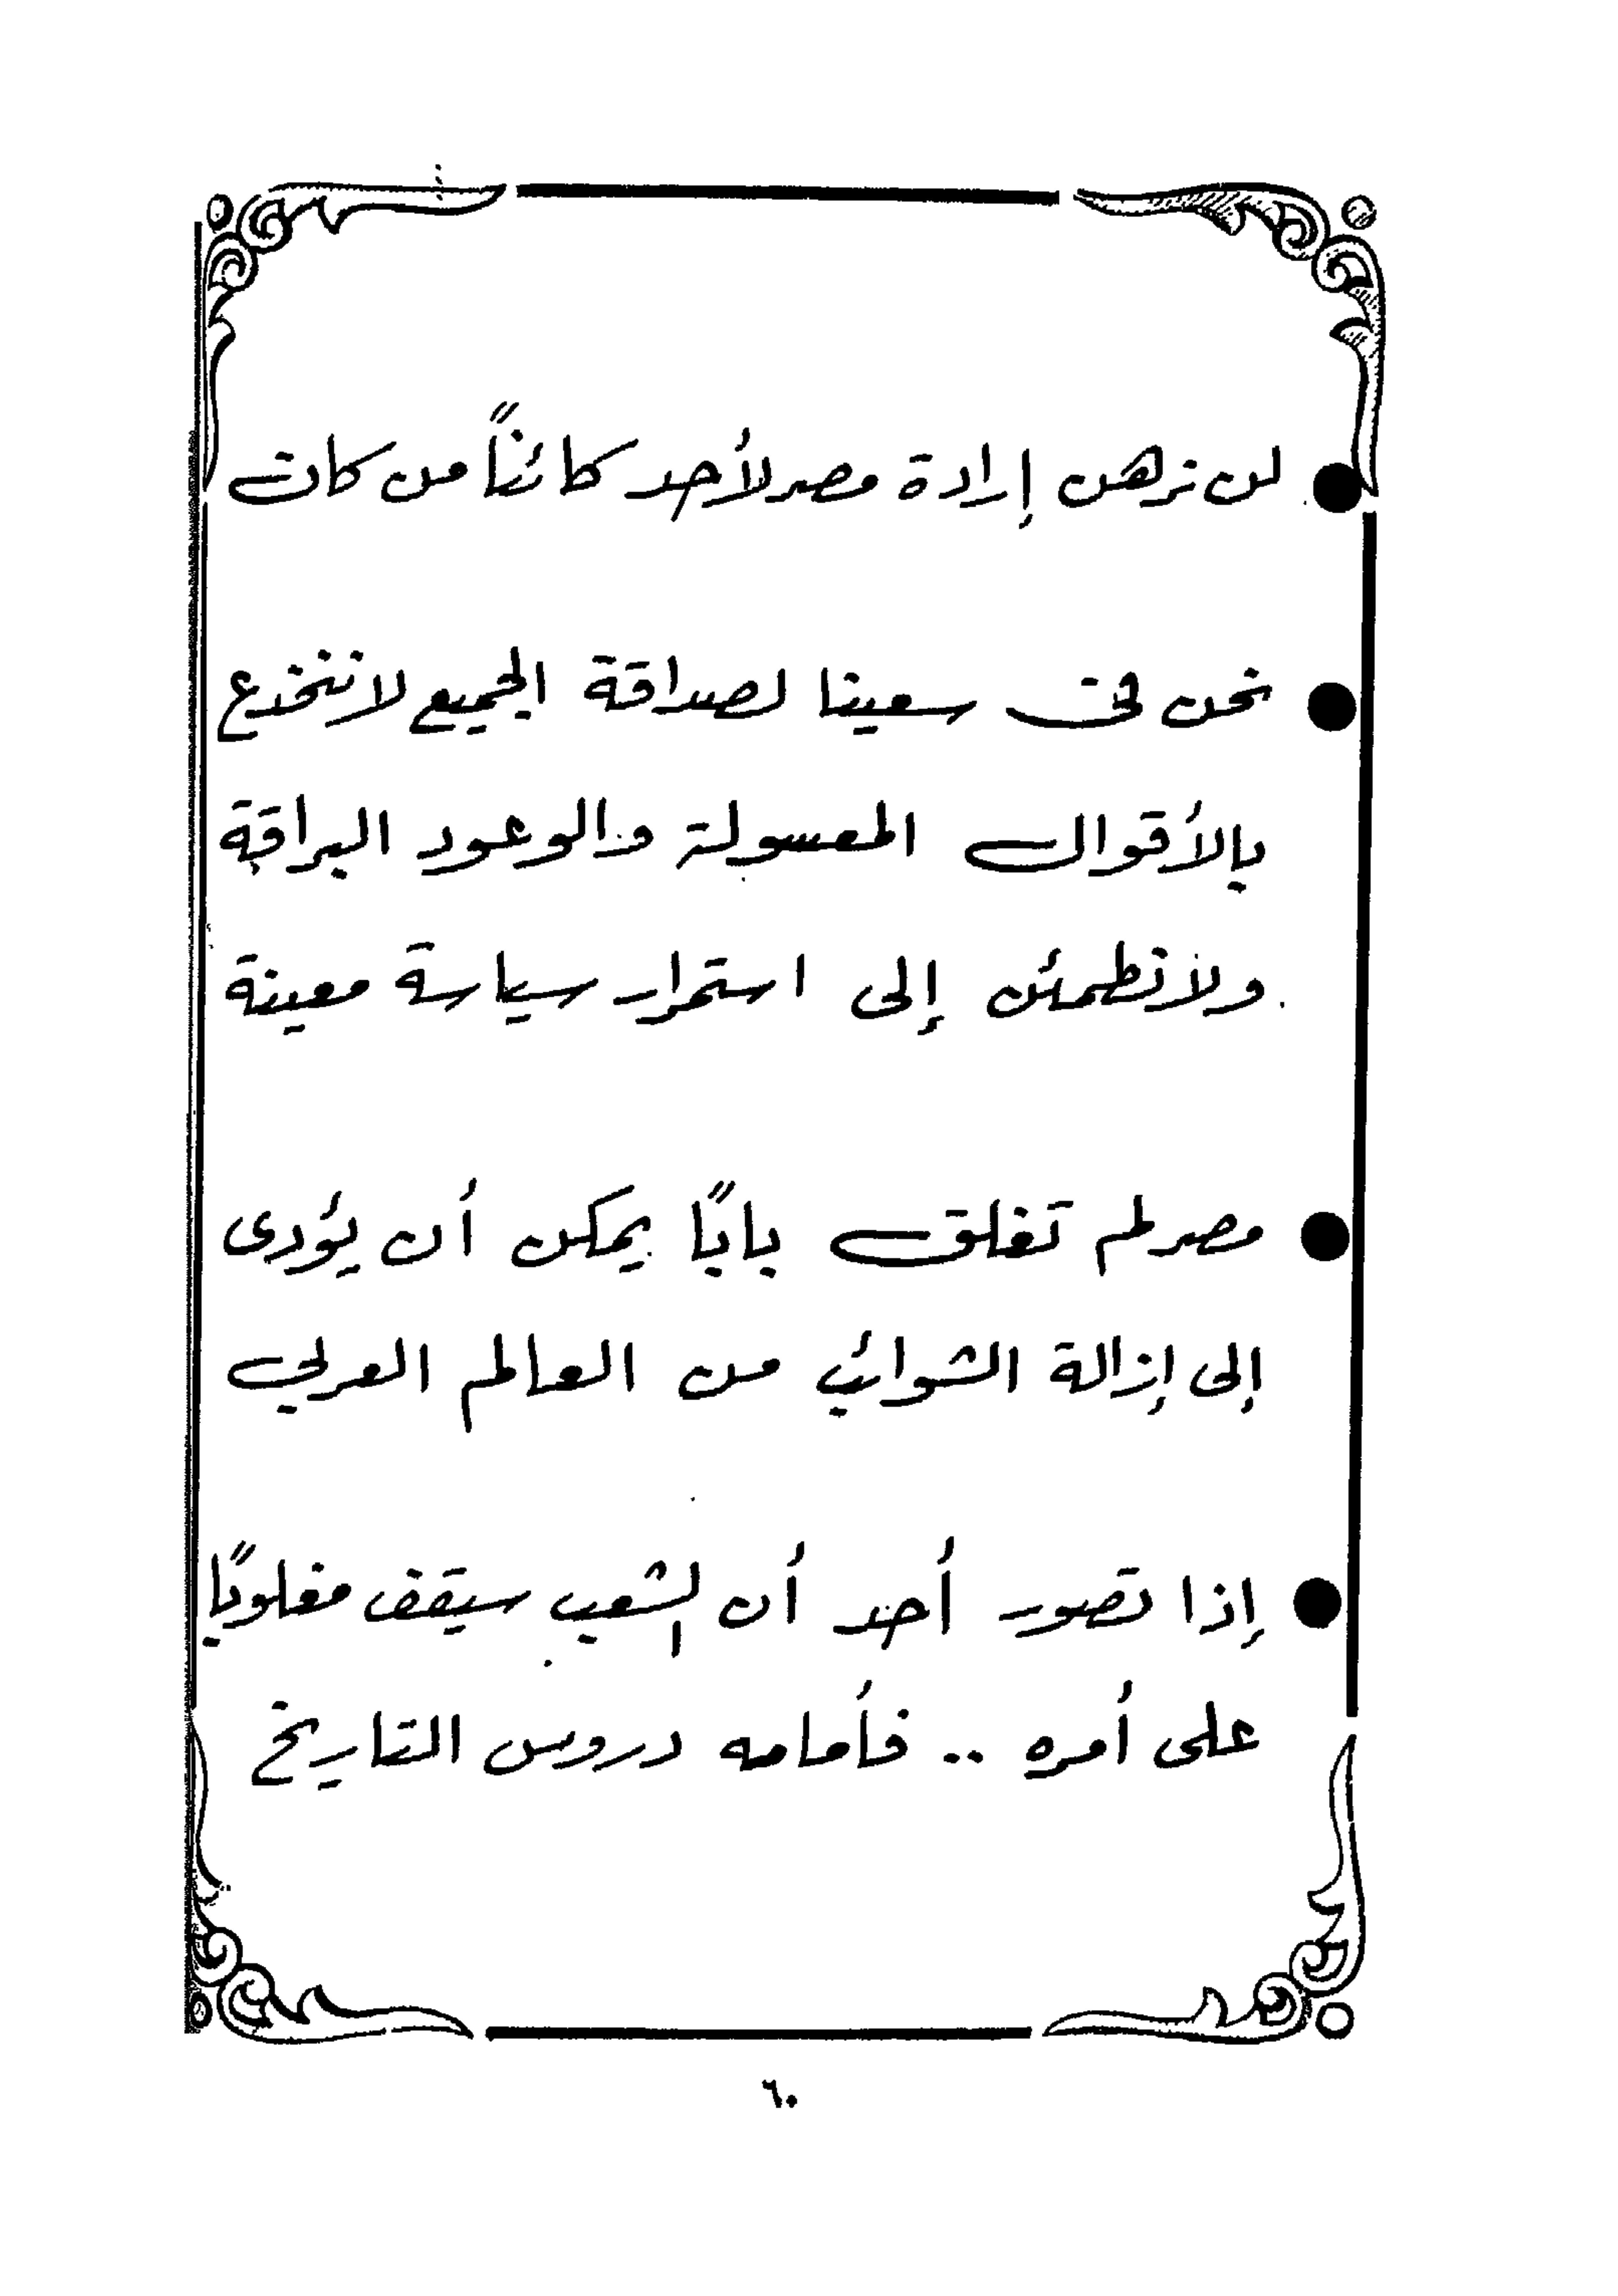 ● لن نرهن إرادة مصر لأحد كائناً من كان
● نحن في سعينا لصداقة الجميع لا ننخدع
بالأقوال المعسولة والوعود البراقة
ولا نطمئن إلى استمرار سياسة معينة
● مصر لم تغلق باباً يمكن أن يؤدى
إلى إزالة الشوائب من العالم العربي
● إذا تصور أحد أن الشعب سيقف مغلوباً
على أمره .. فأمامه دروس التاريخ
٦٠